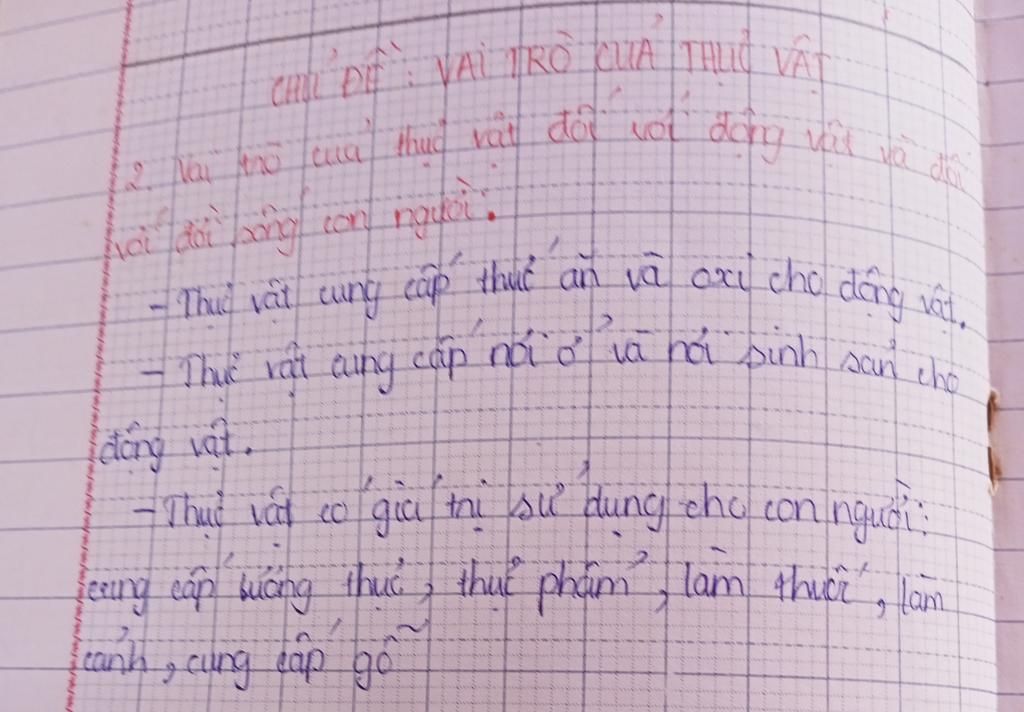 CHỦ ĐỀ: VAI TRÒ CỦA THỰC VẬT
2. Vai trò của thực vật đối với động vật và đối
với đời sống con người.
- Thực vật cung cấp thức ăn và oxi cho động vật.
- Thực vật cung cấp nơi ở và nơi sinh sản cho
động vật.
- Thực vật có giá trị sử dụng cho con người:
cung cấp lương thực, thực phẩm, làm thuốc, làm
cảnh, cung cấp gỗ